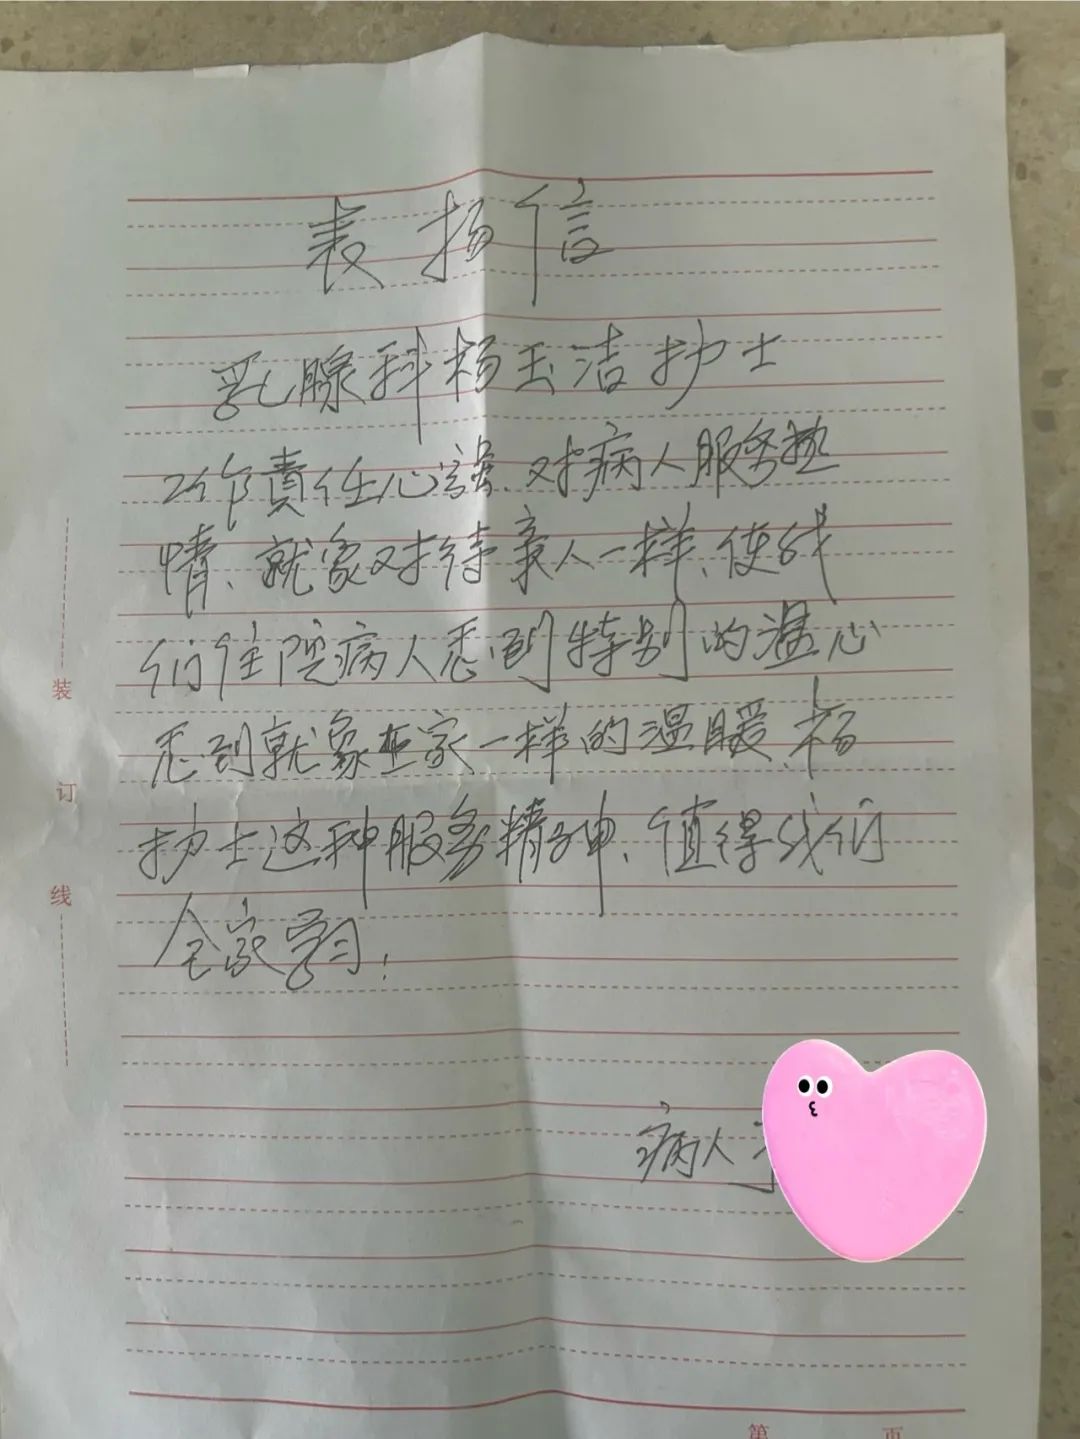 表扬信
乳腺科杨玉洁护士
工作責任心强、对病人服务热
情、就象对待亲人一样、使我
们住院病人感到特别的温心
感到就象在家一样的温暖、杨
护士这种服务精神、值得我们
全家学习!
病人
装
订
线
第 页